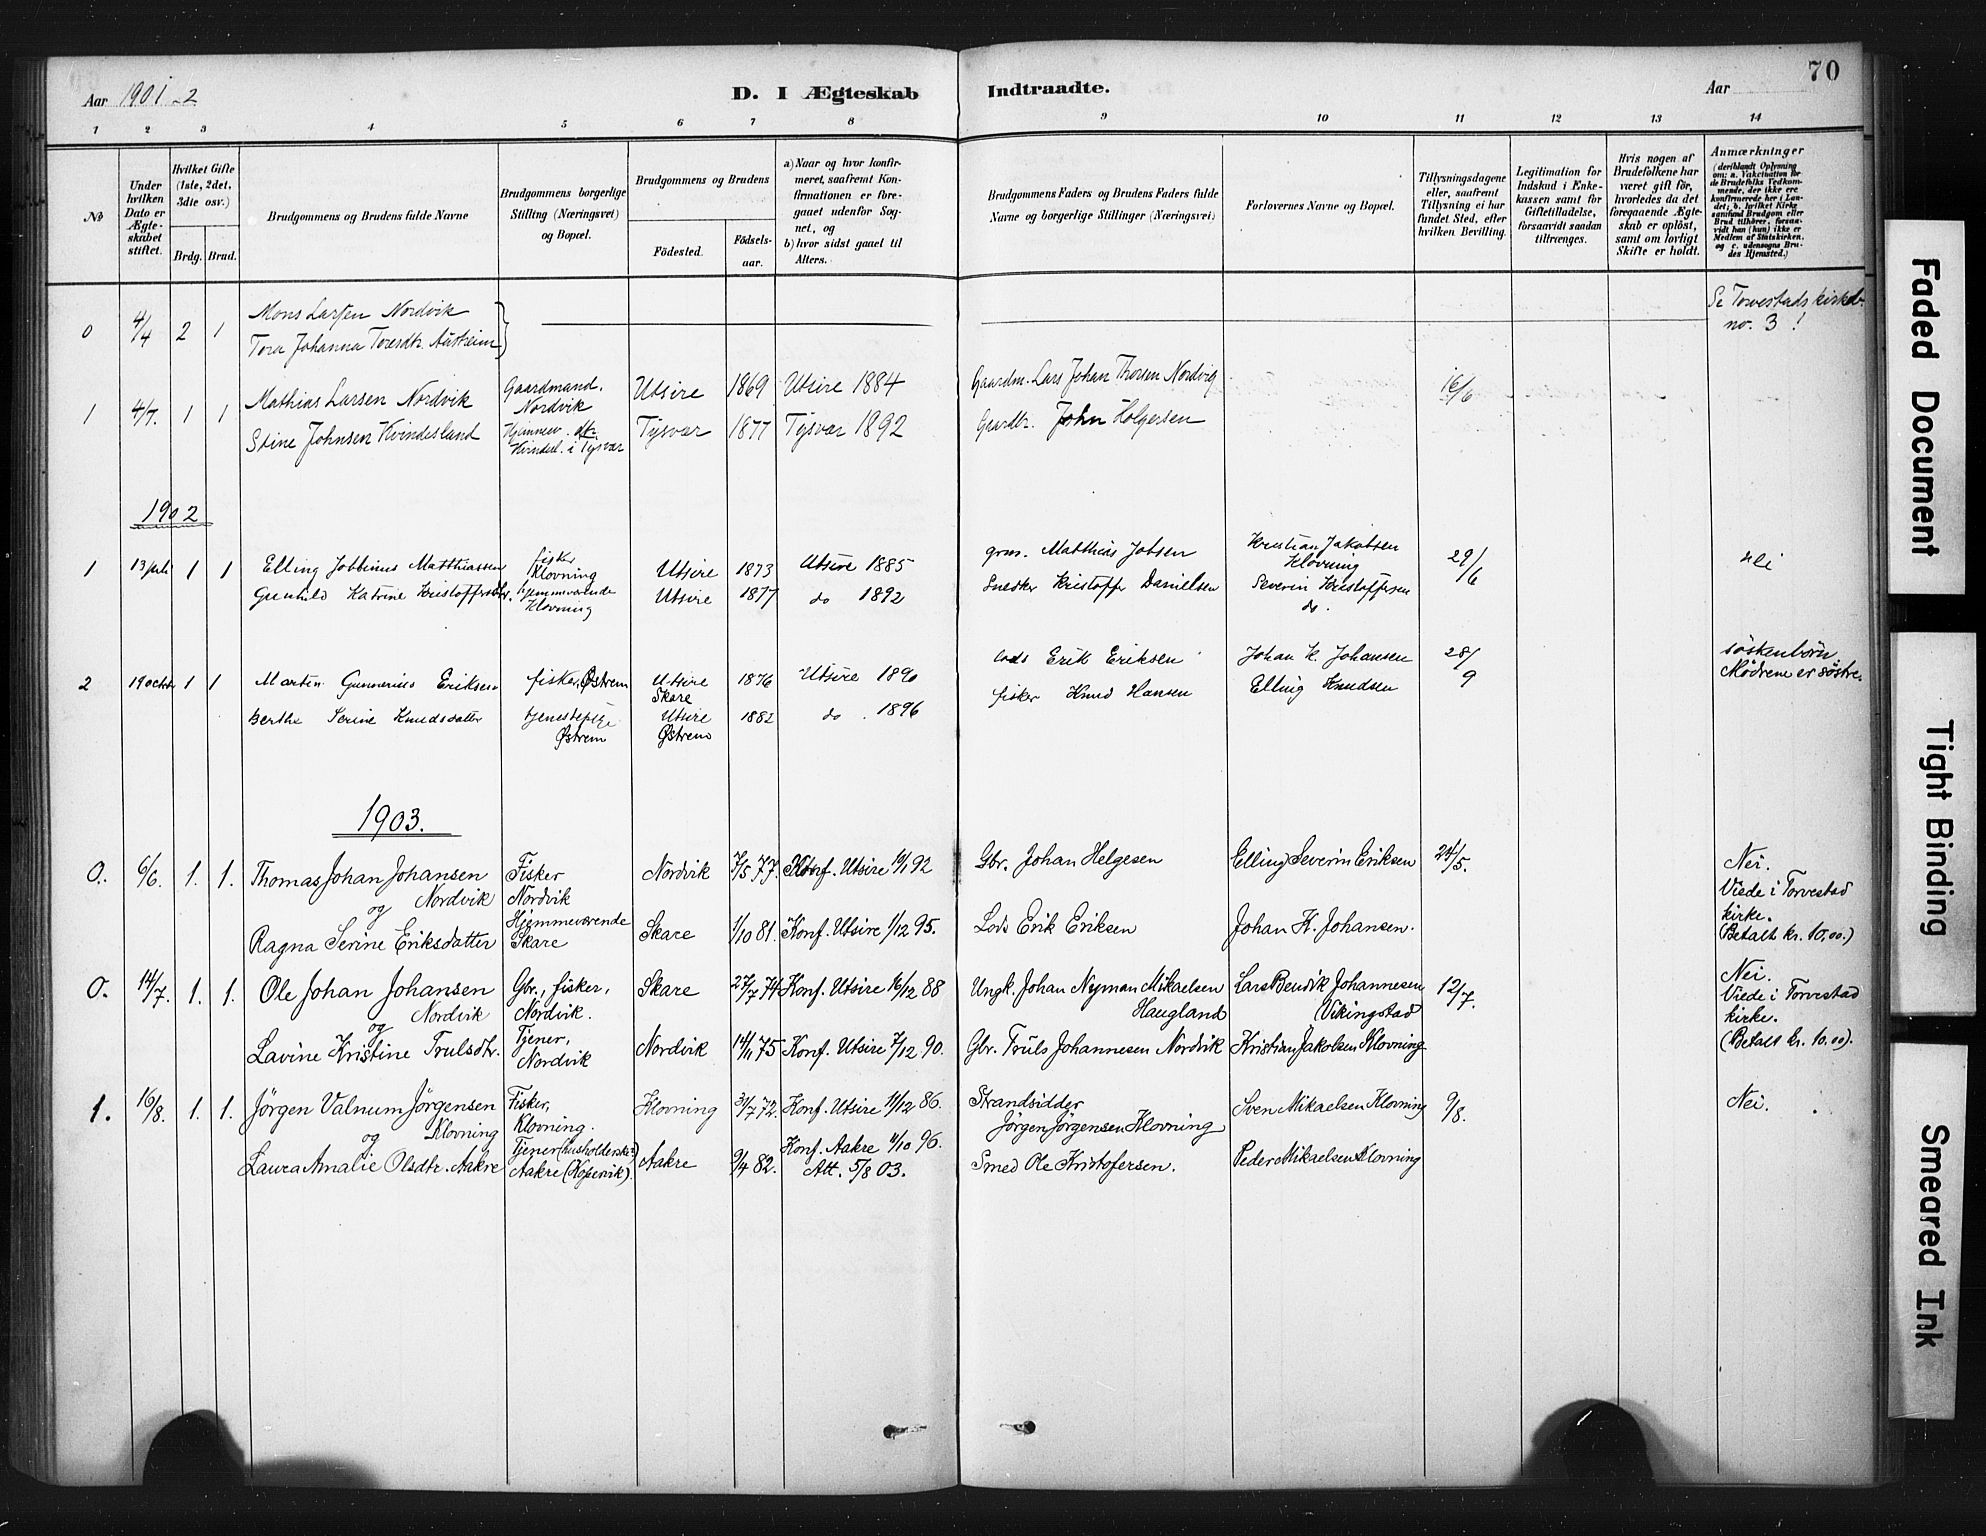 Aar 1901-2
D. I Ægteskab Indtraadte.
Aar
70
1 2 3 4 5 6 7 8 9 10 11 12 13 14
No
Under hvilken Dato er Ægteskabet stiftet.
Hvilket Gifte (1ste, 2det, 3die osv.)
Brdg. Brud.
Brudgommens og Brudens fulde Navne
Brudgommens borgerlige Stilling (Næringsvei) og Bopæl.
Brudgommens og Brudens
Födested. Födsels-aar.
a) Naar og hvor konfirmeret, saafremt Konfirmationen er foregaaet udenfor Sognet, og
b) hvor sidst gaaet til Alters.
Brudgommens Faders og Brudens Faders fulde Navne og borgerlige Stillinger (Næringsvei)
Forlovernes Navne og Bopæl.
Tillysningsdagene eller, saafremt Tillysning ei har fundet Sted, efter hvilken Bevilling.
Legitimation for Indskud i Enkekassen samt for Giftetilladelse, forsaavidt saadan tiltrænges.
Hvis nogen af Brudefolkene har været gift för, hvorledes da det foregaaende Ægteskab er oplöst, samt om lovligt Skifte er holdt.
Anmærkninger
(deriblandt Oplysning om: a. Vakcination for de Brudefolks Vedkommende, der ikke ere konfirmerede her i Landet; b. hvilket Kirkesamfund Brudgom eller Brud tilhörer, forsaavidt han (hun) ikke er Medlem af Statskirken, og c. udensogns Brudes Hjemsted.)
0 4/4 2 1 Mons Larsen Nordvik
Tora Johanna Toresdtr.
Se Torvestads kirkeb.
no. 3!
1 4/7. 1 1 Mathias Larsen Nordvik Gaardmand. Nordvik Utsire 1869 Utsire 1884 Gaardm. Lars Johan Thorsen Nordvig 16/6
Stine Johnsen Kvindesland Kvindesl. i Tysvær Tysvær 1877 Tysvær 1892 Gaardbr. John Holgersen
1902
1 13 juli 1 1 Elling Jobbinus Matthiassen fisker Klovning Utsire 1873 Utsire 1885 grm. Matthias Jobsen Kristian Jakobsen Klovning 29/6
Gunhild Katrine Kristoffersdtr. hjemmeværende Klovning Utsire 1877 do 1892 Snedker Kristoffer Danielsen Severin Kristoffersen do.
2 19 octbr 1 1 Martin Gunnerius Eriksen fisker, Østrem Utsire Skare 1876 Utsire 1890 lods Erik Eriksen Johan K. Johansen 28/9 söskenbörn
Mödrene er söstre.
Berthe Serine Knudsdatter tjenestepige Østrem Utsire Østrem 1882 do. 1896 fisker Knud Hansen Elling Knudsen
1903.
0. 6/6. 1. 1. Thomas Johan Johansen Fisker Nordvik 7/5 77. Konf. Utsire 92 Gbr. Johan Helgesen Elling Severin Eriksen 24/5. Nei.
Nordvik Nordvik Viede i Torvestad
og Hjemmeværende kirke.
Ragna Serine Eriksdatter Skare Skare 1/10 81. Konf. Utsire 1/12 95. Lods Erik Eriksen Johan K. Johansen. (Betalt kr. 10,00.)
0. 14/7. 1. 1. Ole Johan Johansen Gbr., fisker, Skare 27/7 74 Konf. Utsire 16/12 88 Ungk. Johan Nyman Mikaelsen Lars Bendik Johannesen 12/7. Nei.
Nordvik Nordvik. Haugland Vikingstad Viede i Torvestad
og Tjener, kirke.
Lavine Kristine Trulsdtr. Nordvik Nordvik 14/11 75 Konf. Utsire 7/12 90. Gbr. Truls Johannesen Nordvik Kristian Jakobsen Klovning (Betalt kr. 10.00).
1. 16/8. 1. 1. Jörgen Valnum Jörgensen Fisker, Klovning 31/7 72. Konf. Utsire 11/12 86. Strandsidder Sven Mikaelsen Klovning 9/8. Nei.
og Klovning Klovning. Jörgen Jörgensen Klovning
Tjener (husholderske) Konf. Aakre 11/10 96.
Laura Amalie Olsdtr. Aakre Aakre (Kopervik). Aakre 9/4 82. Att. 5/8 03. Smed Ole Kristofersen. Peder Mikaelsen Klovning
Faded Document
Tight Binding
Smeared Ink